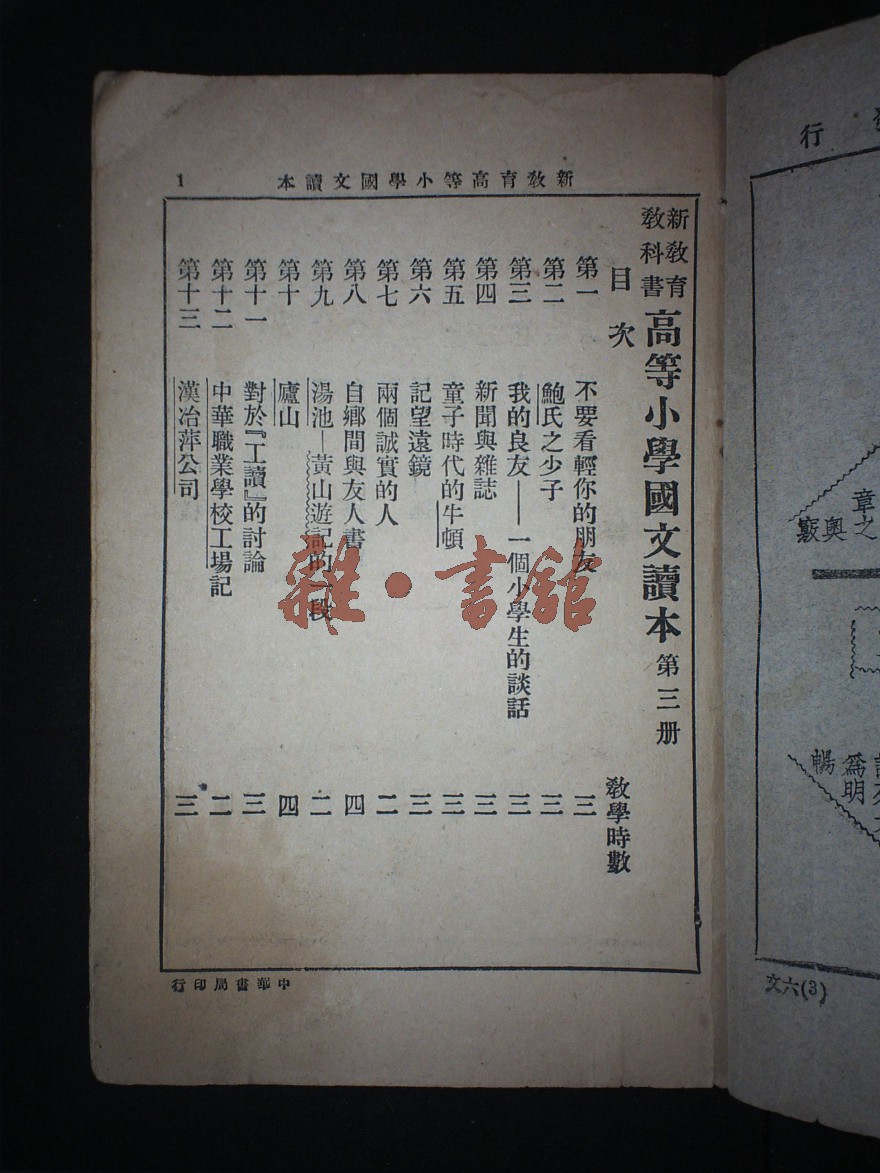 新教育高等小學國文讀本
1
新教育
教科書
高等小學國文讀本 第三册
目次 教學時數
第一 不要看輕你的朋友 三
第二 鮑氏之少子 三
第三 我的良友——一個小學生的談話 三
第四 新聞與雜誌 三
第五 童子時代的牛頓 三
第六 記望遠鏡 三
第七 兩個誠實的人 二
第八 自鄉間與友人書 四
第九 湯池—黃山遊記的一段 二
第十 廬山 四
第十一 對於『工讀』的討論 三
第十二 中華職業學校工場記 二
第十三 漢冶萍公司 三
中華書局印行
雜·書館
行
章之奧竅
爲明暢
文六(3)